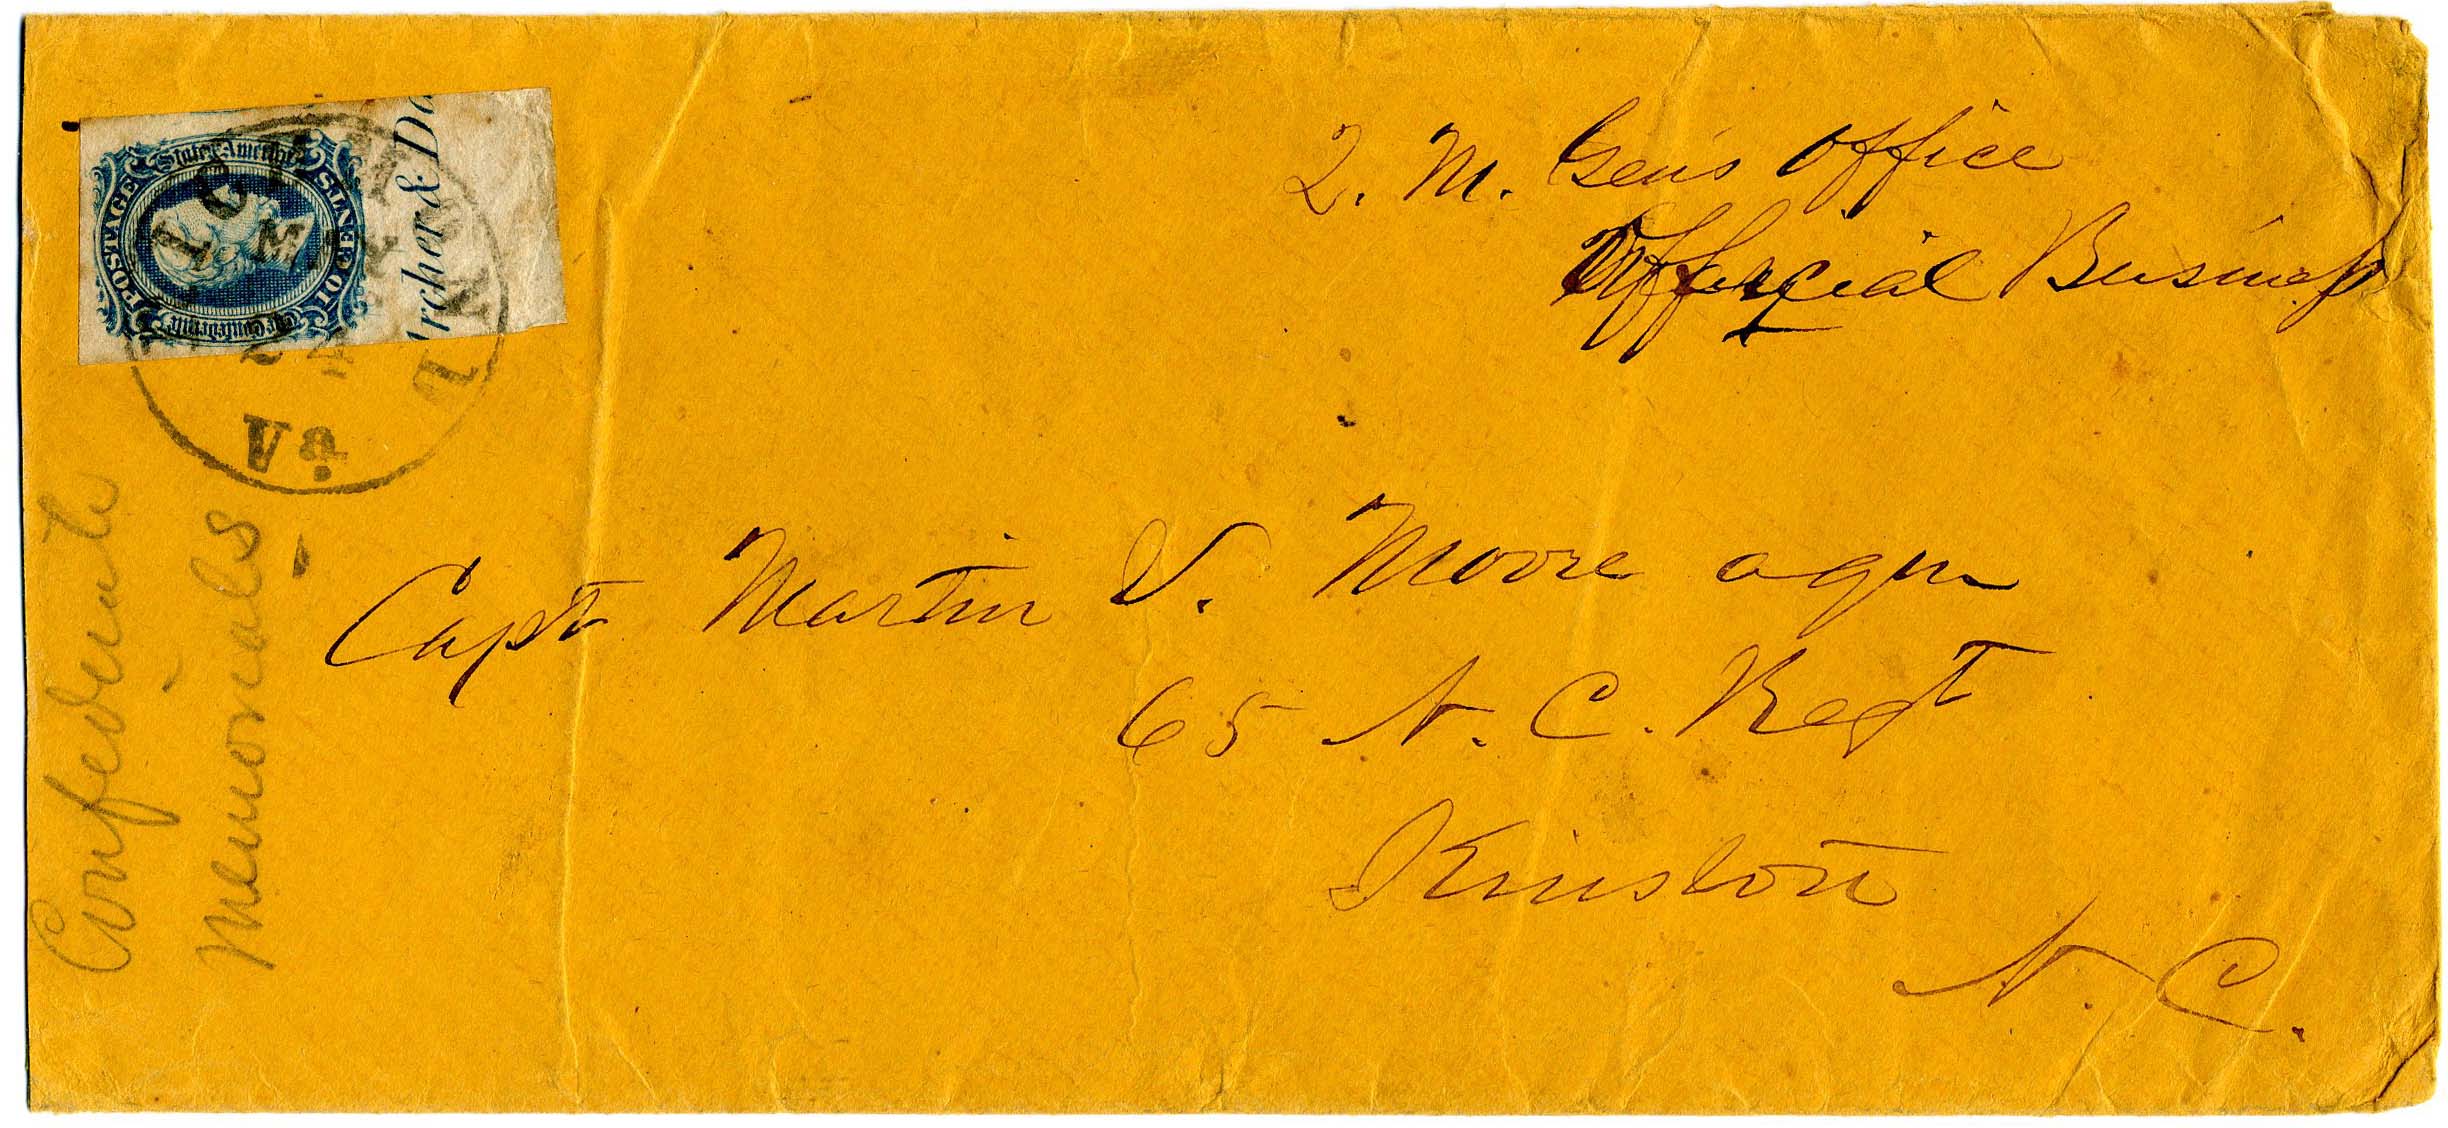 Q. M. Gen's Office
Official Business
Capt Martin V. Moore aqm
65 N. C. Regt
Kinston
N. C.
Confederate
Memorials
POSTAGE
States of America
TEN CENTS
The Confederate
Archer & Da
RICHMOND
Va.